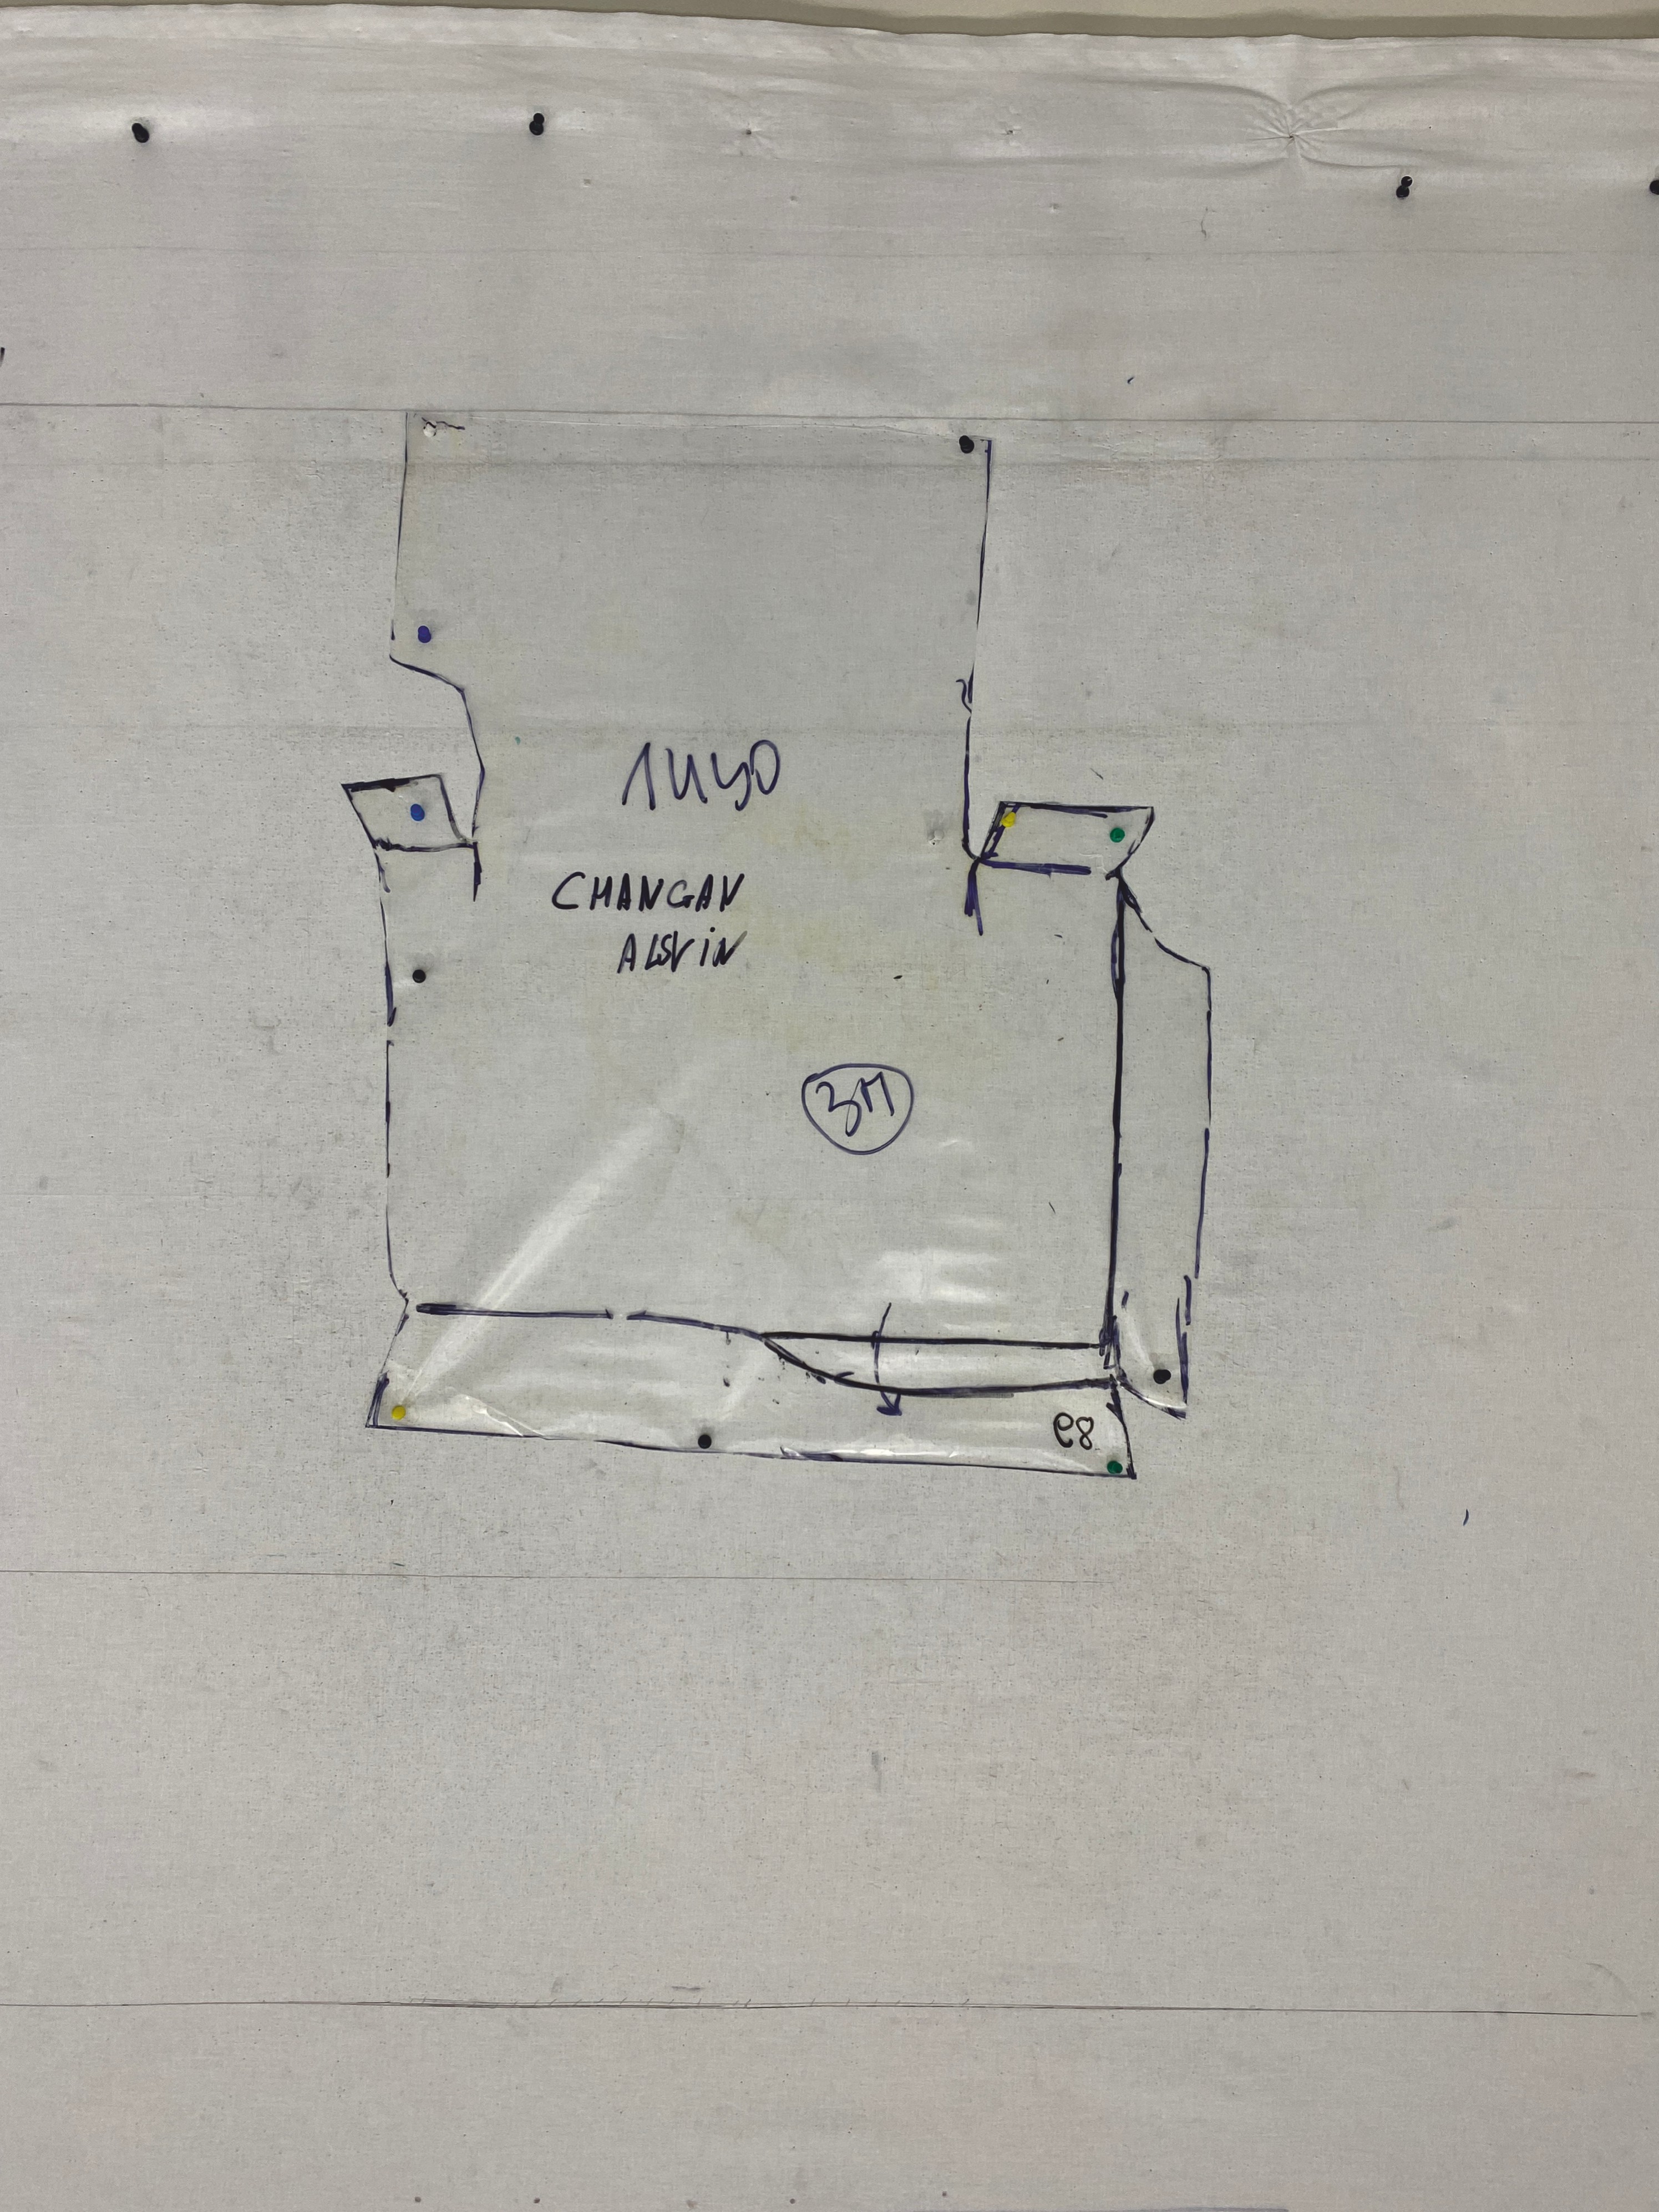 1440
CHANGAN
ALSVIN
3M